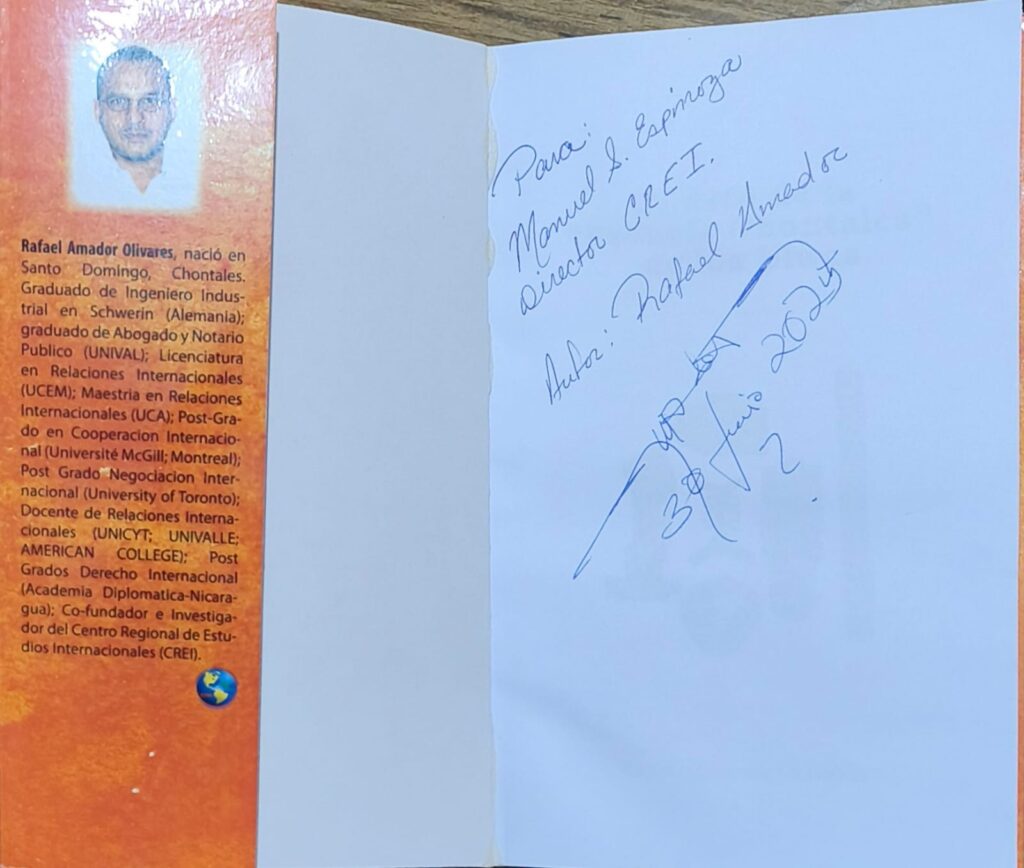 Rafael Amador Olivares, nació en
Santo Domingo, Chontales.
Graduado de Ingeniero Indus-
trial en Schwerin (Alemania);
graduado de Abogado y Notario
Publico (UNIVAL); Licenciatura
en Relaciones Internacionales
(UCEM); Maestria en Relaciones
Internacionales (UCA); Post-Gra-
do en Cooperacion Internacio-
nal (Université McGill; Montreal);
Post Grado Negociacion Inter-
nacional (University of Toronto);
Docente de Relaciones Interna-
cionales (UNICYT; UNIVALLE;
AMERICAN COLLEGE); Post
Grados Derecho Internacional
(Academia Diplomatica-Nicara-
gua); Co-fundador e Investiga-
dor del Centro Regional de Estu-
dios Internacionales (CREI).
Para:
Manuel S. Espinoza
Director CREI.
Autor: Rafael Amador
30 Junio